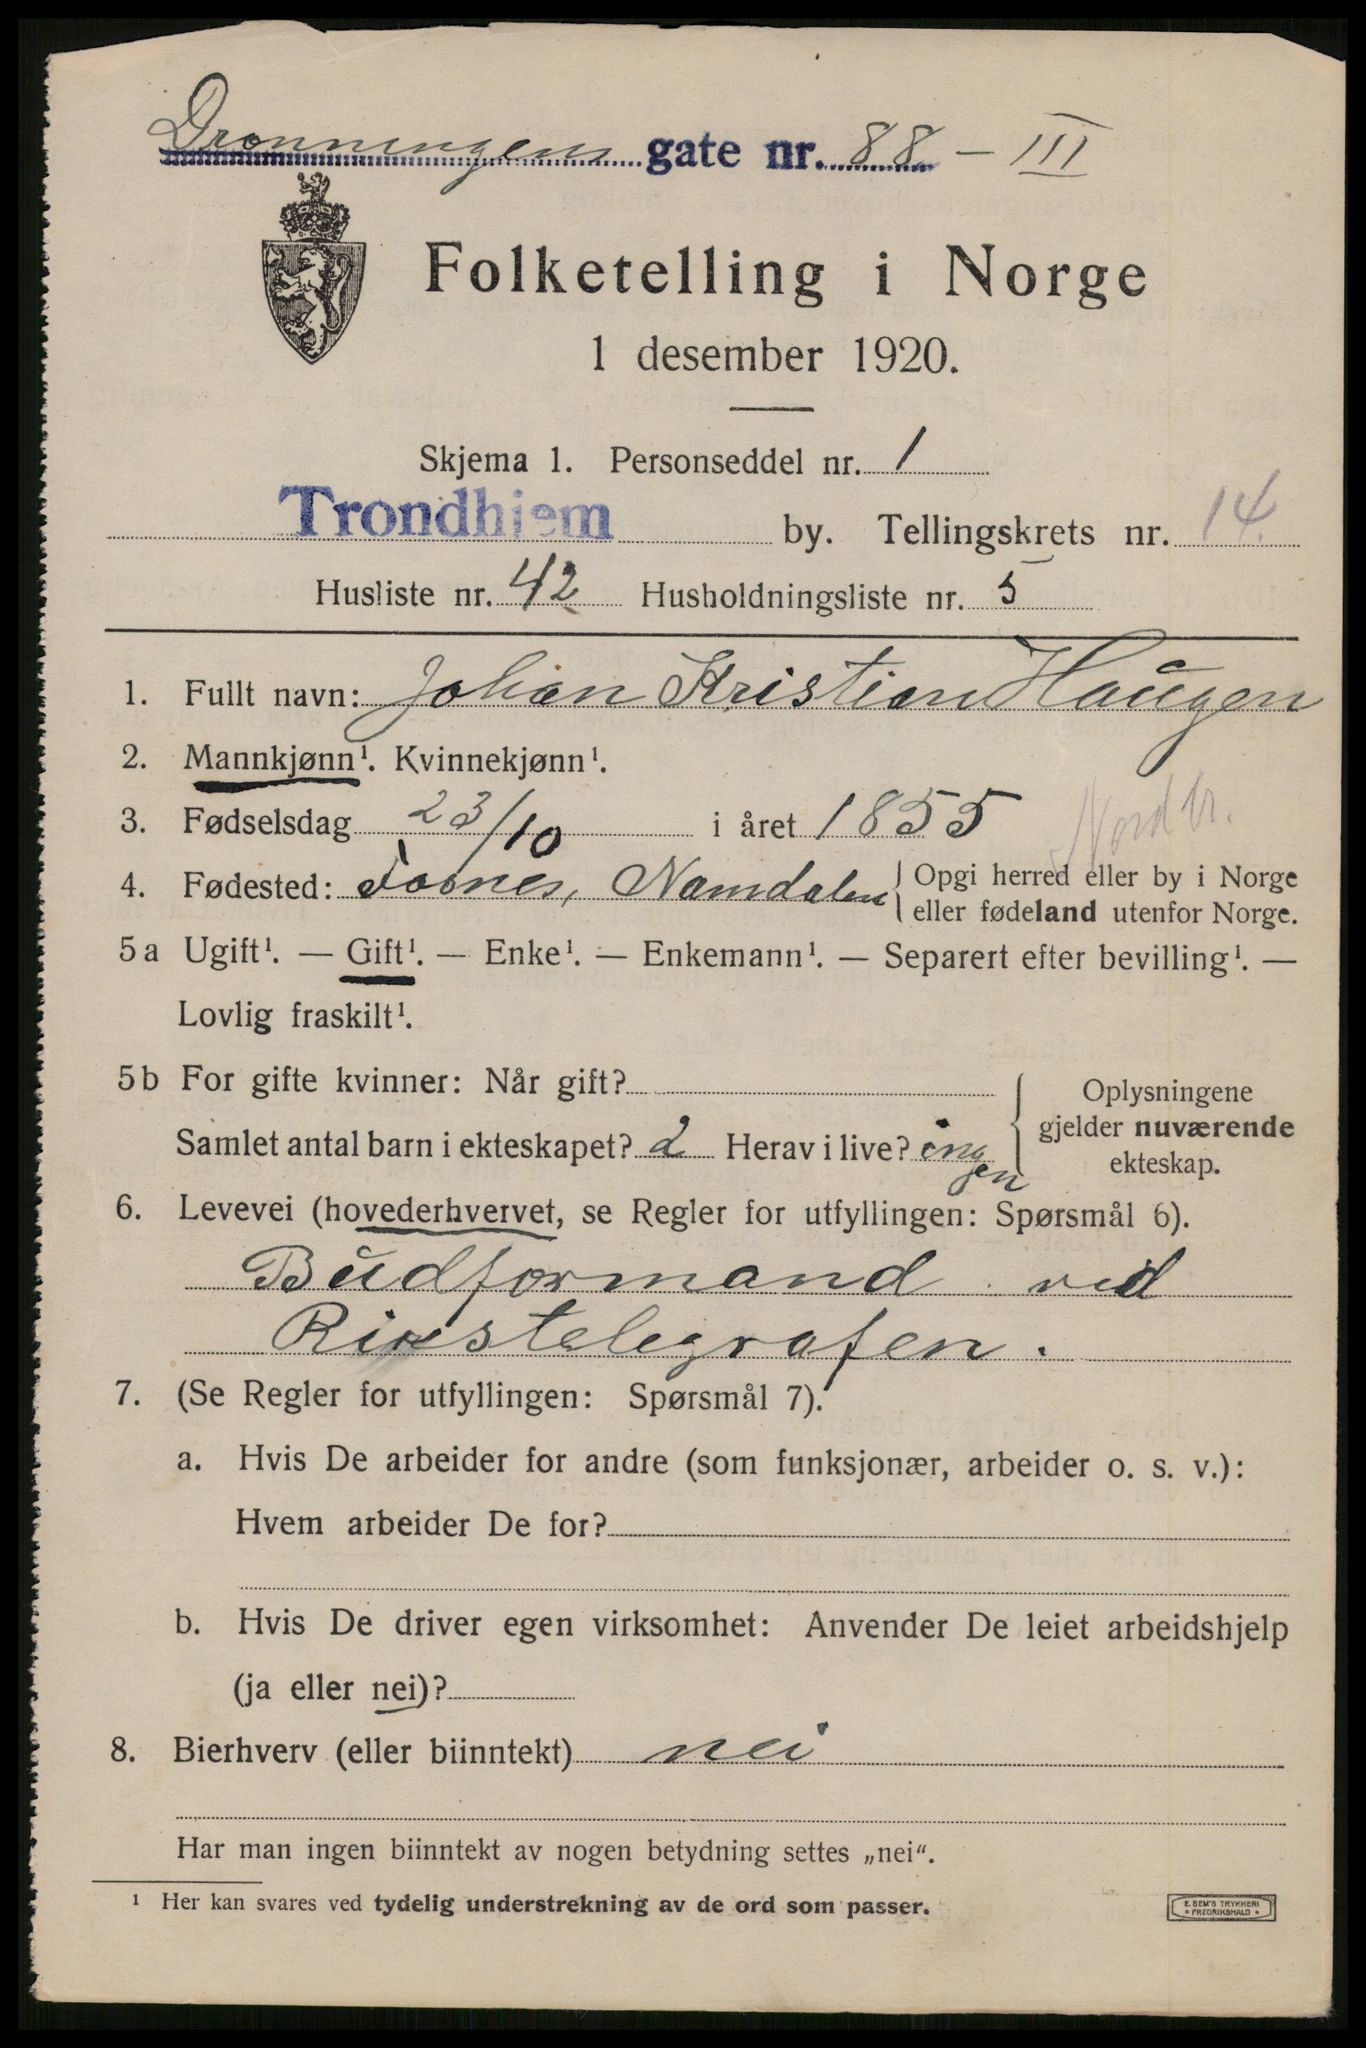 Dronningens gate nr. 88 – III
Folketelling i Norge
1 desember 1920.
Skjema 1. Personseddel nr. 1
Trondhjem by. Tellingskrets nr. 14.
Husliste nr. 42 Husholdningsliste nr. 5
1. Fullt navn: Johan Kristian Haugen
2. Mannkjønn¹. Kvinnekjønn¹.
3. Fødselsdag 23/10 i året 1855
Nord tr.
4. Fødested: Fosnes, Namdalen { Opgi herred eller by i Norge
eller fødeland utenfor Norge.
5a Ugift¹. — Gift¹. — Enke¹. — Enkemann¹. — Separert efter bevilling¹. —
Lovlig fraskilt¹.
5b For gifte kvinner: Når gift?
Samlet antal barn i ekteskapet? 2 Herav i live? ingen
Oplysningene
gjelder nuværende
ekteskap.
6. Levevei (hovederhvervet, se Regler for utfyllingen: Spørsmål 6).
Budformand ved
Rikstelegrafen.
7. (Se Regler for utfyllingen: Spørsmål 7).
a. Hvis De arbeider for andre (som funksjonær, arbeider o. s. v.):
Hvem arbeider De for?
b. Hvis De driver egen virksomhet: Anvender De leiet arbeidshjelp
(ja eller nei)?
8. Bierhverv (eller biinntekt) nei
Har man ingen biinntekt av nogen betydning settes „nei“.
¹ Her kan svares ved tydelig understrekning av de ord som passer.
E. SEM'S TRYKKERI
* FREDRIKSHALD *